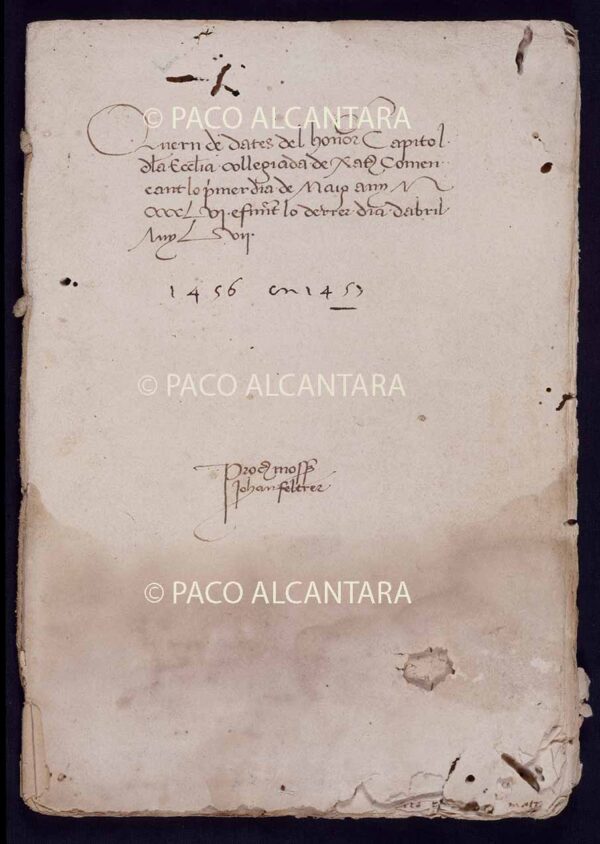 © PACO ALCANTARA
Quern de dates del honor Capitol
dla Ecclia collegiada de Xatᵃ Comen
cant lo pmer dia de Maig any M
CCCCLVI. e finit lo derrer dia dabril
Any LVII.
1456 en 1457
© PACO ALCANTARA
Procᵈ moss
Johan feltrer
© PACO ALCANTARA